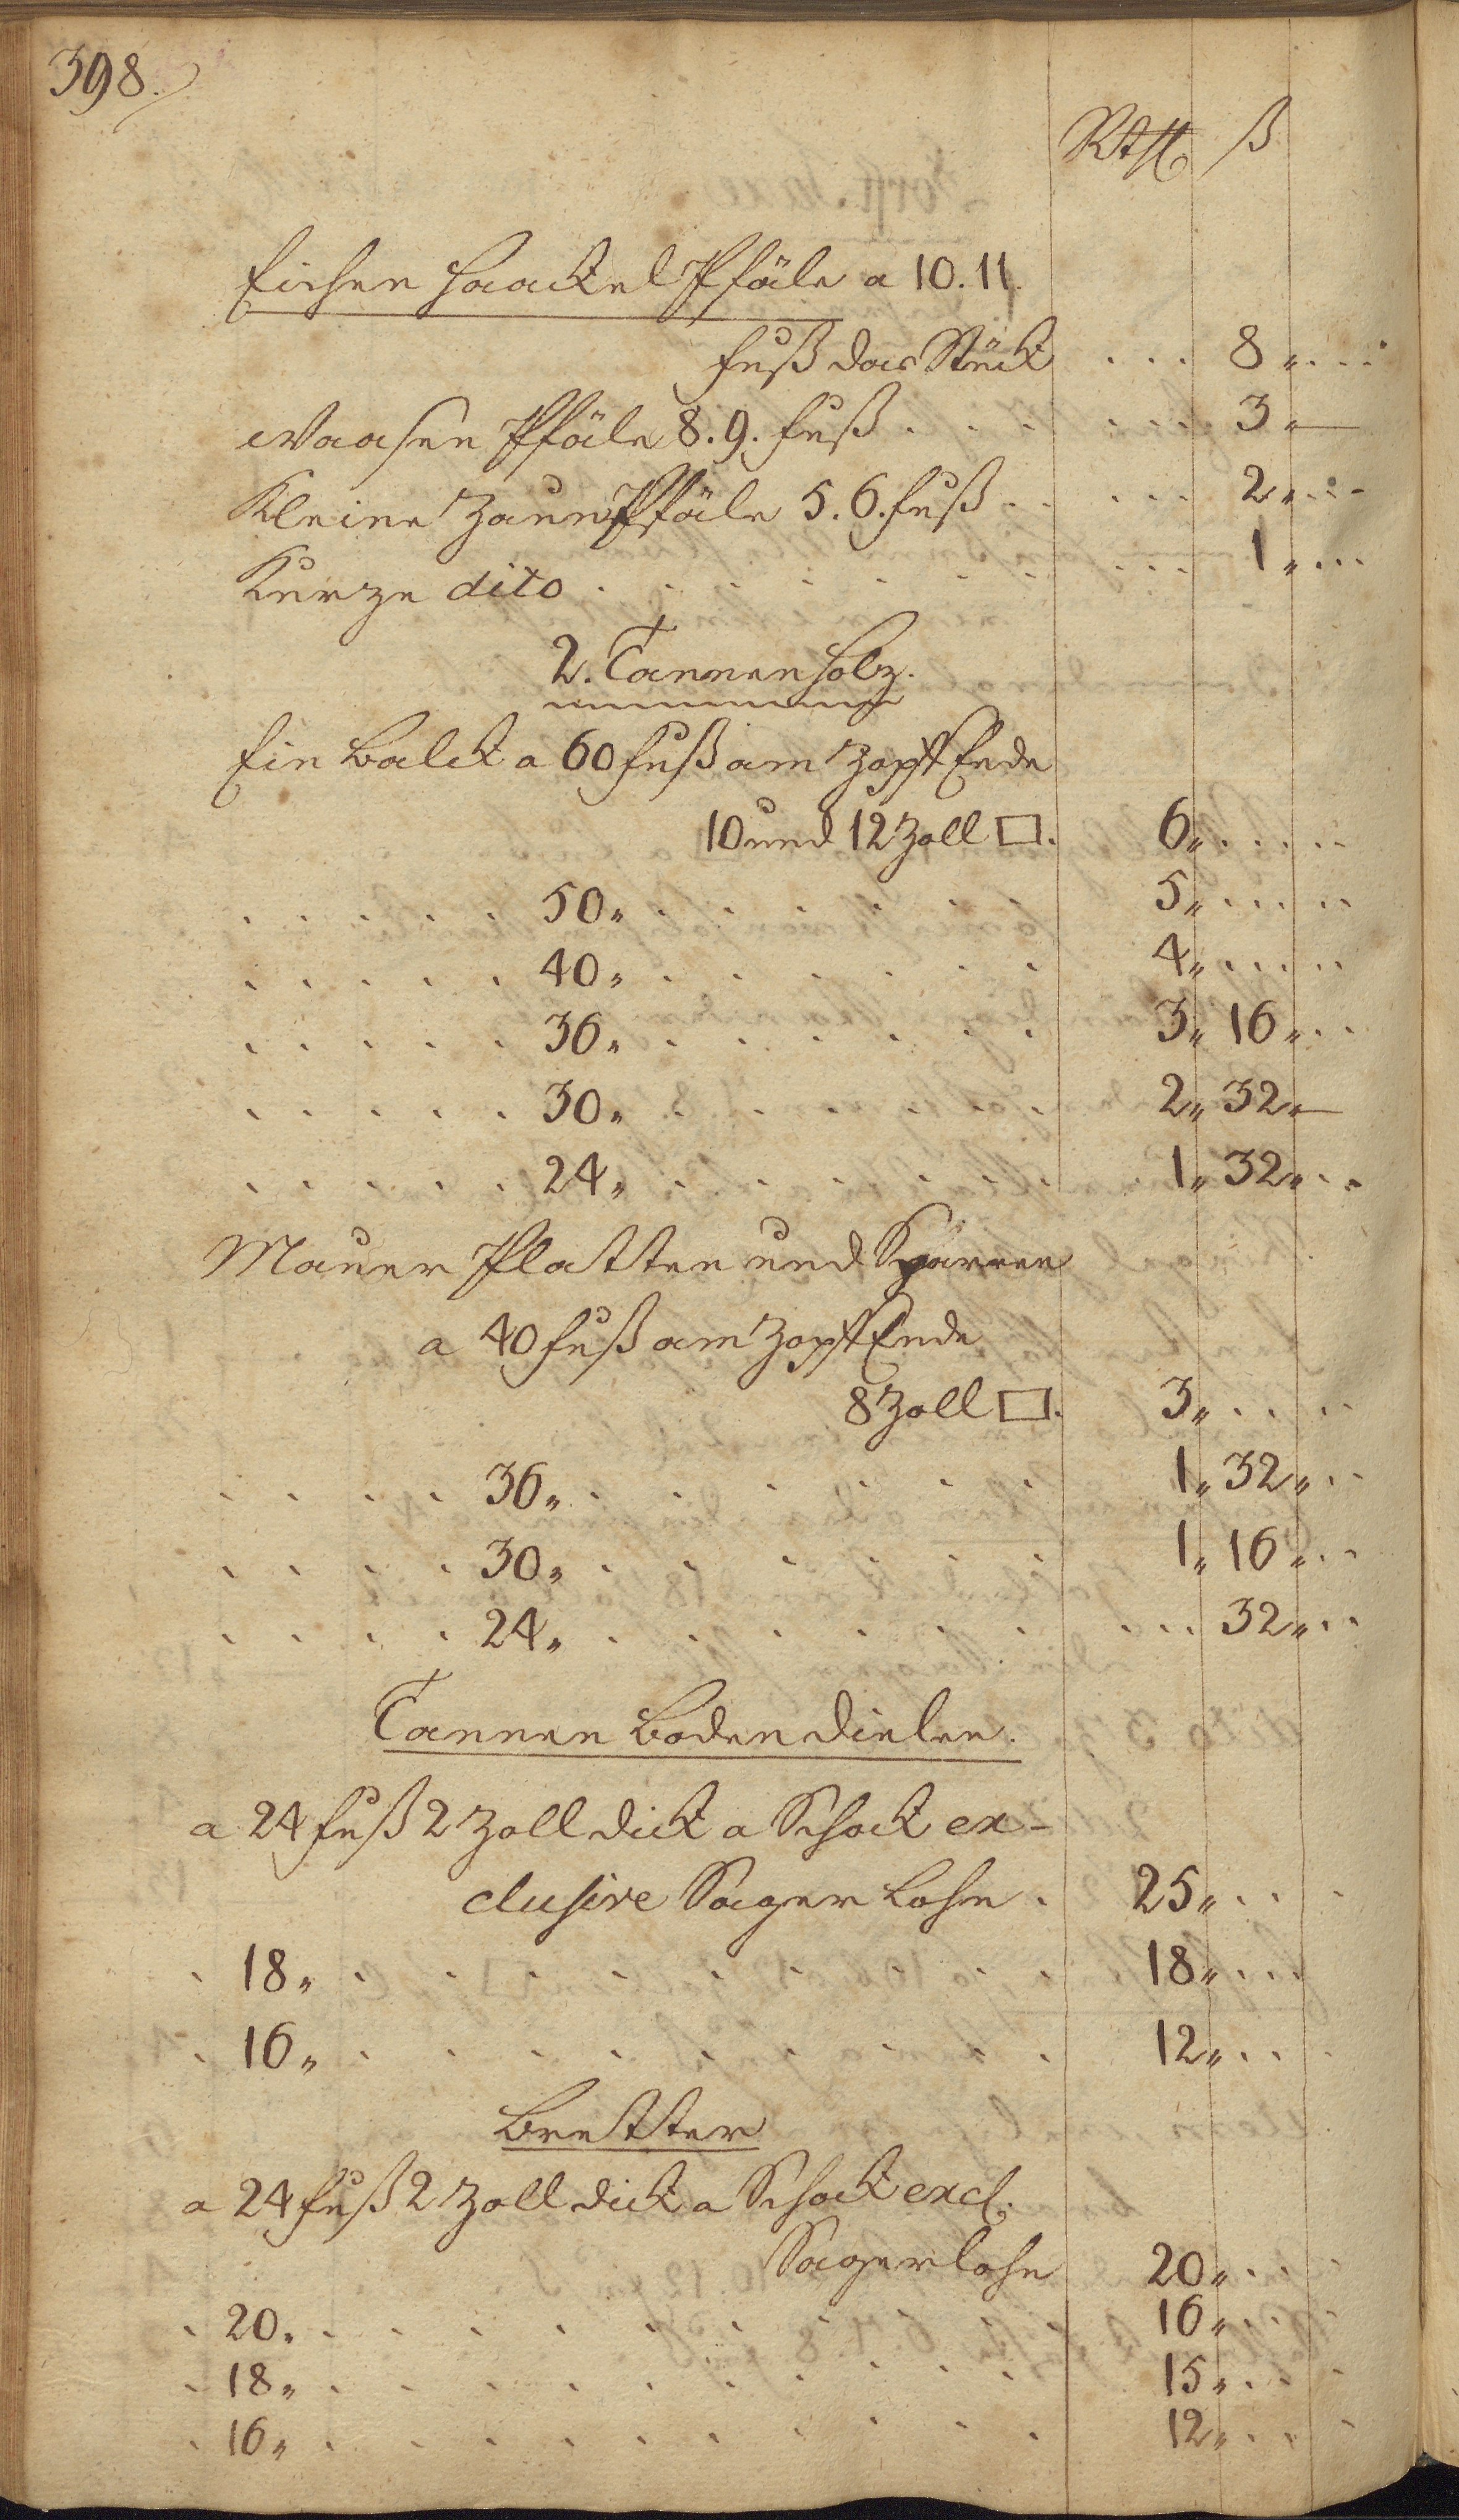 398.
Rthl ß
Eichen Haackel Pfäle a 10. 11.
Fuß das Stück . . . 8 „ . . .
Waasen Pfäle 8. 9. Fuß . . . . . . 3 „ —
Kleine Zaun Pfäle 5. 6. Fuß . . . . . 2 „ . . .
Kurze dito . . . . . . . . . . 1 „ . . .
2. Tannen Holz.
Ein Balck a 60 Fuß am Zopf Ende
10 und 12 Zoll □. 6 „ . . . . .
. . . . . 50 „ . . . . . 5 „ . . . . .
. . . . . 40 „ . . . . . . 4 „ . . . . .
. . . . . 36 „ . . . . . . 3 „ 16 „ . .
. . . . . 30 „ . . . . . . 2 „ 32 „ —
. . . . . 24 „ . . . . . . 1 „ 32 „ . .
Mauer Platten und Sparren
a 40 Fuß am Zopf Ende
8 Zoll □. 3 „ . . . . .
. . . . 36 „ . . . . . . 1 „ 32 „ . .
. . . . 30 „ . . . . . . 1 „ 16 „ . .
. . . . 24 „ . . . . . . . . . 32 „ . .
Tannen Bodendielen.
a 24 Fuß 2 Zoll dick a Schock ex-
clusive Sager Lohn . 25 „ . . .
. 18 „ . . . . . . . . . 18 „ . . .
. 16 „ . . . . . . . . . 12 „ . . .
Bretter
a 24 Fuß 2 Zoll dick a Schock excl.
Sagerlohn 20 „ . . .
. 20. . . . . . . . . . 16 „ . . .
. 18 „ . . . . . . . . . 15 „ . . .
. 16 „ . . . . . . . . . 12 „ . . .